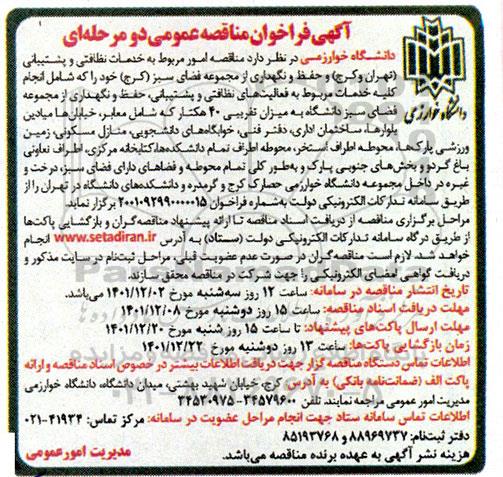 آگهی فراخوان مناقصه عمومی دو مرحله‌ای
دانشگاه خوارزمی در نظر دارد مناقصه امور مربوط به خدمات نظافتی و پشتیبانی
(تهران و کرج) و حفظ و نگهداری از مجموعه فضای سبز (کرج) خود را که شامل انجام
کلیه خدمات مربوط به فعالیت‌های نظافتی و پشتیبانی، حفظ و نگهداری از مجموعه
فضای سبز دانشگاه به میزان تقریبی ۴۰ هکتار که شامل معابر، خیابان‌ها میادین
بلوارها، ساختمان اداری، دفتر فنی، خوابگاه‌های دانشجویی، منازل مسکونی، زمین
دانشگاه خوارزمی
ورزشی پارک‌ها، محوطه اطراف استخر، محوطه اطراف تمام دانشکده‌ها، کتابخانه مرکزی، اطراف تعاونی
باغ گردو و بخش‌های جنوبی پارک و به‌طور کلی تمام محوطه و فضاهای دارای فضای سبز، درخت و
غیره در داخل مجموعه دانشگاه خوارزمی حصارک کرج و گرمدره و دانشکده‌های دانشگاه در تهران را از
طریق سامانه تدارکات الکترونیکی دولت به‌شماره فراخوان ۲۰۰۱۰۹۲۹۹۰۰۰۰۰۱۵ برگزار نماید.
مراحل برگزاری مناقصه از دریافت اسناد مناقصه تا ارائه پیشنهاد مناقصه‌گران و بازگشایی پاکت‌ها
از طریق درگاه سامانه تدارکات الکترونیکی دولت (ستاد) به آدرس www.setadiran.ir انجام
خواهد شد. لازم است مناقصه‌گران در صورت عدم عضویت قبلی، مراحل ثبت‌نام در سایت مذکور و
دریافت گواهی امضای الکترونیکی را جهت شرکت در مناقصه محقق سازند.
تاریخ انتشار مناقصه در سامانه: ساعت ۱۲ روز سه‌شنبه مورخ ۱۴۰۱/۱۲/۰۲ می‌باشد.
مهلت دریافت اسناد مناقصه: ساعت ۱۵ روز دوشنبه مورخ ۱۴۰۱/۱۲/۰۸
مهلت ارسال پاکت‌های پیشنهاد: تا ساعت ۱۵ روز شنبه مورخ ۱۴۰۱/۱۲/۲۰
زمان بازگشایی پاکت‌ها: ساعت ۱۳ روز دوشنبه مورخ ۱۴۰۱/۱۲/۲۲
اطلاعات تماس دستگاه مناقصه گزار جهت دریافت اطلاعات بیشتر در خصوص اسناد مناقصه و ارائه
پاکت الف (ضمانت‌نامه بانکی) به آدرس کرج، خیابان شهید بهشتی، میدان دانشگاه، دانشگاه خوارزمی
مدیریت امور عمومی مراجعه نمایند. تلفن ۳۴۵۷۹۶۰۰ - ۳۴۵۳۰۹۷۵
اطلاعات تماس سامانه ستاد جهت انجام مراحل عضویت در سامانه: مرکز تماس: ۴۱۹۳۴-۰۲۱
دفتر ثبت‌نام: ۸۸۹۶۹۷۳۷ و ۸۵۱۹۳۷۶۸
هزینه نشر آگهی به عهده برنده مناقصه می‌باشد.
مدیریت امور عمومی